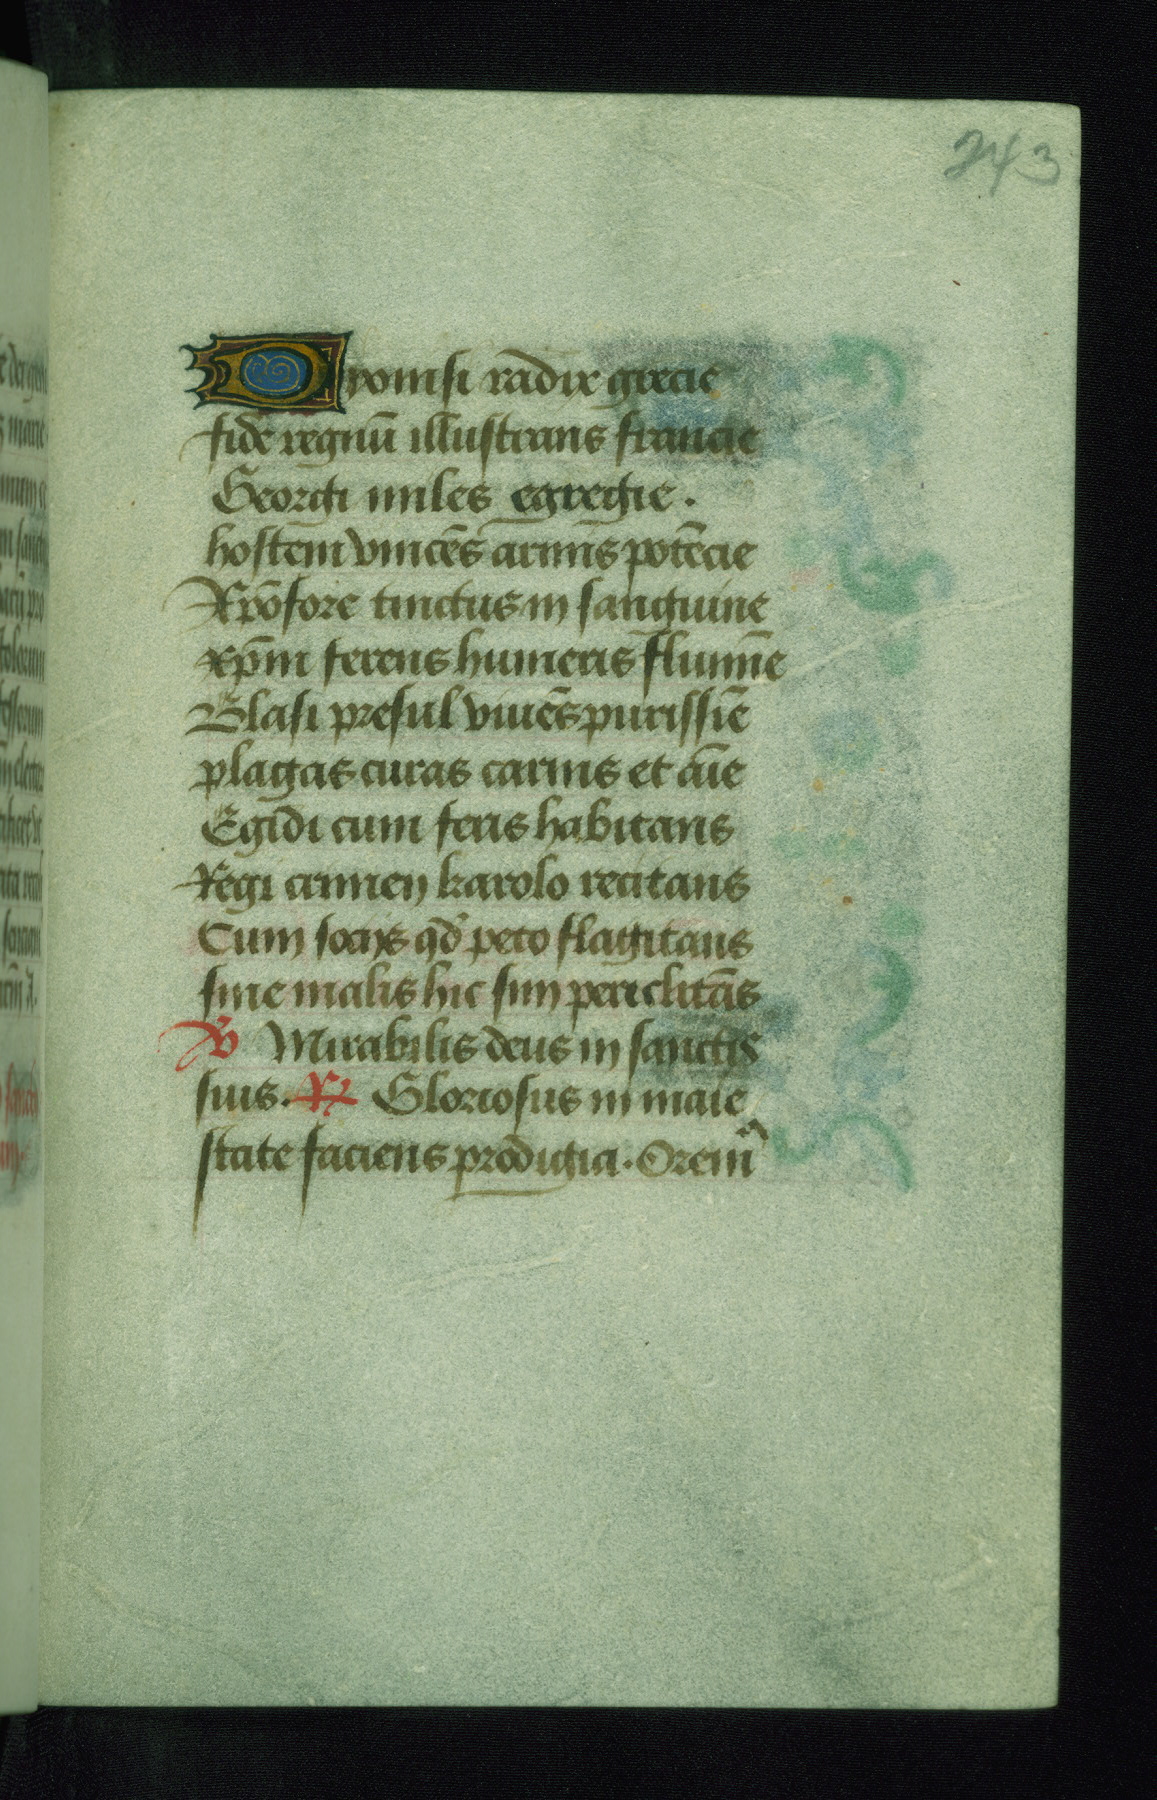 243
Dyonisi radix grecie
fide regnū illustrans francie
Georgi miles egregie.
hostem vincēs armis potēcie
Xpōfore tinctus in sanguine
xpm̄ ferens humeris flumīe
Blasi presul viuēs purissīe
plagas curas carnis et aīe
Egidi cum feris habitans
Regi crimen karolo recitans
Cum socijs qd̄ peto flagitans
sine malis hic sim periclitās
℣ Mirabilis deus in sanctis
suis. ℟ Gloriosus in maie
state faciens prodigia. Oremꝰ